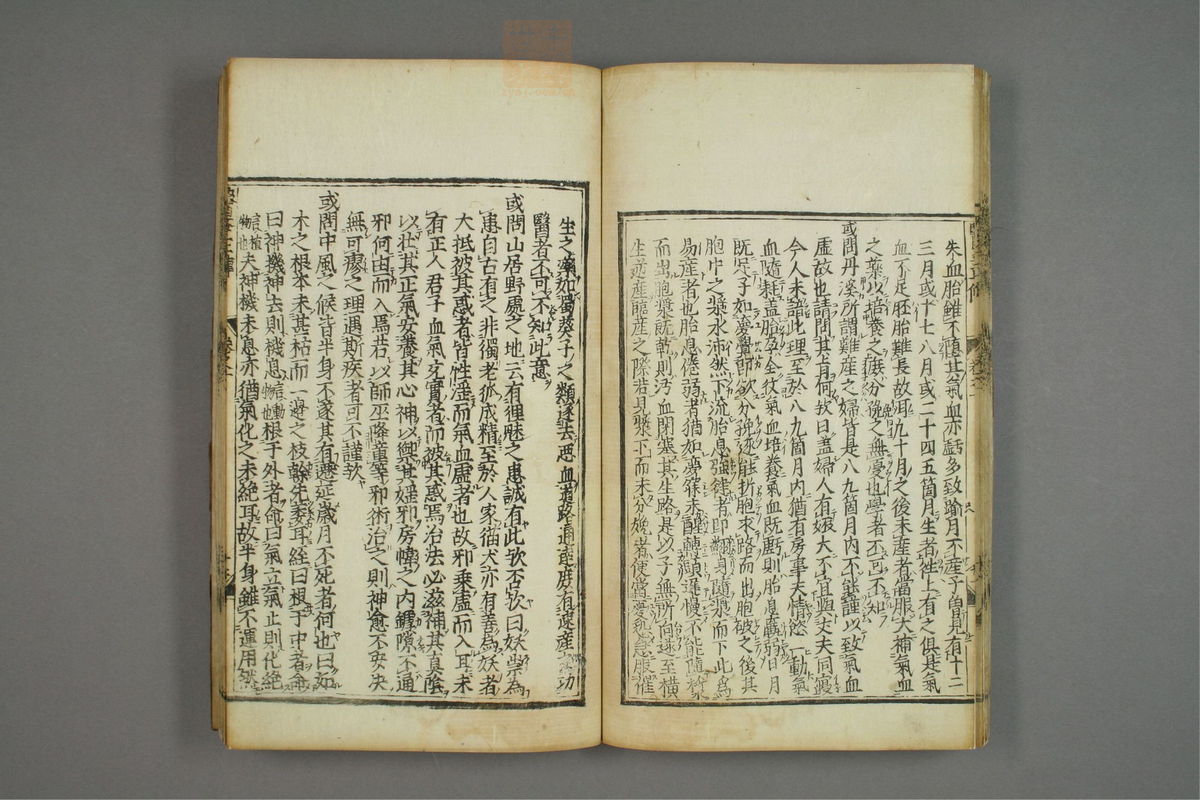 朱血胎雖不損其氣血亦虧多致踰月不産予曽見有十二
三月或十七八月或二十四五箇月生者徃上有之俱是氣
血不足胚胎難長故耳九十月之後未産者當服大補氣血
之藥以培養之庶分娩之無憂也學者不可不知
或問丹溪所謂難産之婦皆是八九箇月内不能謹以致氣血
虚故也請問其旨何欤曰蓋婦人有娠大不宜與丈夫同寢
今人未諳此理至於八九箇月内猶有房事夫情慾一動氣
血隨耗蓋胎孕全仗氣血培養氣血既虧則胎息羸弱日月
既足子如夢覺即欲分娩遂能折胞求路而出胞破之後其
胞中之漿水沛然下流胎息強健者即翻身隨漿而下此爲
易産者也胎息倦弱者猶如夢寐未醒轉頭遲慢不能隨漿
而出胞漿既乾則汚血閉塞其生路是以子無所向遂至横
生逆産臨産之際若見漿下而未分娩者便當憂恐急服催
生之藥如蜀葵子之類逐去悪血道路通達庶有速産之功
醫者不可不知此意
或問山居野處之地云有狸魅之患誠有此欤否欤曰妖祟為
患自古有之非獨老狐成精至於人家猫犬亦有善為妖者
大抵被其惑者皆性淫而氣血虚者也故邪乗虚而入耳未
有正人君子血氣充實者而被其惑焉治法必滋補其真陰
以壮其正氣安養其心神以禦其婬邪房幃之内罅隙不通
邪何由而入焉若以師巫降童等邪術治之則神愈不安决
無可療之理遇斯疾者可不謹欤
或問中風之候皆半身不遂其有遷延歳月不死者何也曰如
木之根本未甚枯而一邊之枝幹先萎耳經曰根于中者命
曰神機神去則機息言動物也根于外者命曰氣立氣止則化絶
言植物也夫神機未息亦猶氣化之未絶耳故半身雖不運用然